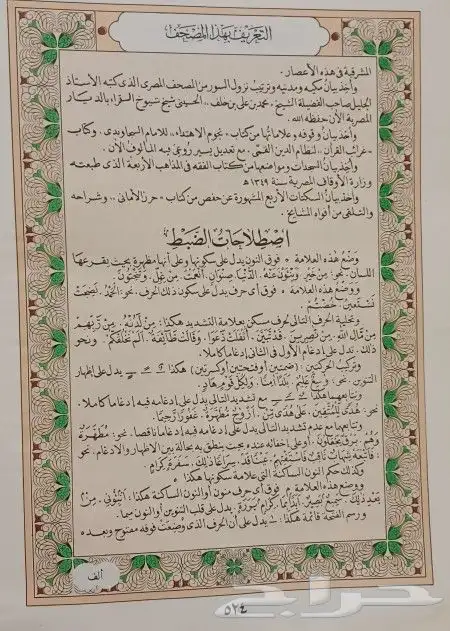 التعريف بهذا المصحف
المشرقية في هذه الأعصار.
وأخذ بيان مكيه ومدنيه وترتيب نزول السور من المصحف المصرى الذى كتبه الأستاذ
الجليل صاحب الفضيلة الشيخ محمد بن على بن خلف.. الحسينى شيخ شيوخ القراء بالديار
المصرية الآن حفظه الله.
وأخذ بيان وقوفه وعلاماتها من كتاب، نجوم الاهتداء، للامام السجاوندى. وكتاب
غرائب القرآن، لنظام الدين القمى. مع تعديل يسير روعى فيه المألوف الآن.
وأخذ بيان السجدات ومواضعها من كتاب الفقه فى المذاهب الأربعة الذى طبعته
وزارة الأوقاف المصرية سنة ١٣٤٩ ه
وأخذ بيان السكتات الأربع المشهورة عن حفص من كتاب «حرز الأمانى» وشراحه
والتلقى من أفواه المشايخ.
اصطلاحات الضبط
وضع هذه العلامة فوق النون يدل على سكونها وعلى أنها مظهرة بحيث يقرعها
اللسان. نحو: من خير. وينئون عنه. الدنيا. صنوان. أنعمت. من غل. وتنحتون.
ووضع هذه العلامة فوق أى حرف يدل على سكون ذلك الحرف. نحو: الحمد. نضجت
نستعين.
وتحلية الحرف التالى لحرف سكن بعلامة التشديد هكذا: من لدنه. من ربهم
من مال الله. من نصرين. قد تبين. أثقلت دعوا. وقالت طائفة. ألم نخلقكم. ونحو
ذلك. تدل على إدغام الأول فى الثانى إدغاما كاملا.
وتركيب الحركتين: (ضمتين أو فتحتين أو كسرتين) هكذا يدل على إظهار
التنوين. نحو: سميع عليم. بلدا آمنا. ولكل قوم هاد.
وتتابعهما هكذا مع تشديد التالى يدل على إدغامه فيه إدغاما كاملا.
نحو: هدى للمتقين. على هدى من. أزواج مطهرة. غفورا رحيما.
وتتابعهما مع عدم تشديد التالى يدل على إدغامه فيه إدغاما ناقصا. نحو: مطهرة
وهم. برق يجعلون. أو على إخفائه عنده بحيث ينطق به بحالة بين الاظهار والادغام. نحو
فأتبعه شهاب ثاقب فاستفتهم. سراعا ذلك. سفرة كرام.
وكذلك حكم النون الساكنة التى علامة سكونها هكذا
ووضع هذه العلامة م فوق أى حرف منون أو النون الساكنة هكذا: أنبئونى. من
بعد ذلك. سميع بصير. كرام بررة. يدل على قلب التنوين أو النون ميما.
ورسم الفتحة قائمة هكذا: يدل على أن الحرف الذى وضعت فوقه مفتوح وبعده
ألف
٥٢٤
حراج